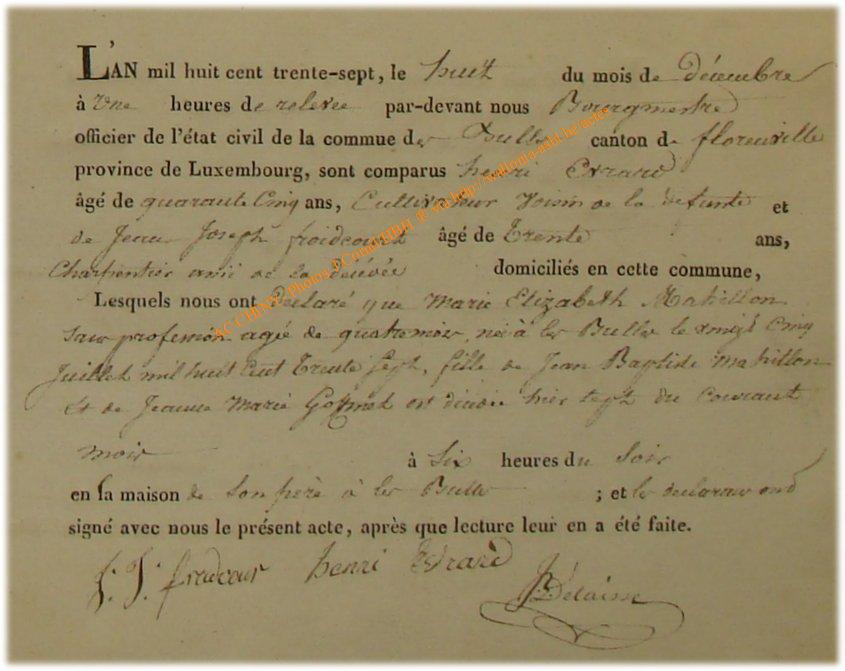 L'AN mil huit cent trente-sept, le huit du mois de décembre
à une heures de relevée par-devant nous Bourgmestre
officier de l'état civil de la commue des Bulles canton de florenville
province de Luxembourg, sont comparus henri Evrard
âgé de quarante Cinq ans, Cultivateur voisin de la defunte et
de Jean Joseph froidcourt âgé de trente ans,
Charpentier ami de la décédée domiciliés en cette commune,
Lesquels nous ont declaré que Marie Elizabeth Mahillon
sans profession agée de quatre mois, née à les Bulles le vingt Cinq
Juillet mil huit cent trente sept, fille de Jean Baptiste Mahillon
et de Jeanne Marie est décédée hier sept du courant
mois à six heures du soir
en la maison de son père à les Bulles ; et les declarans ont
signé avec nous le présent acte, après que lecture leur en a été faite.
J: J: froidcour henri Evrard
AC CHINY Photos P.Conrad